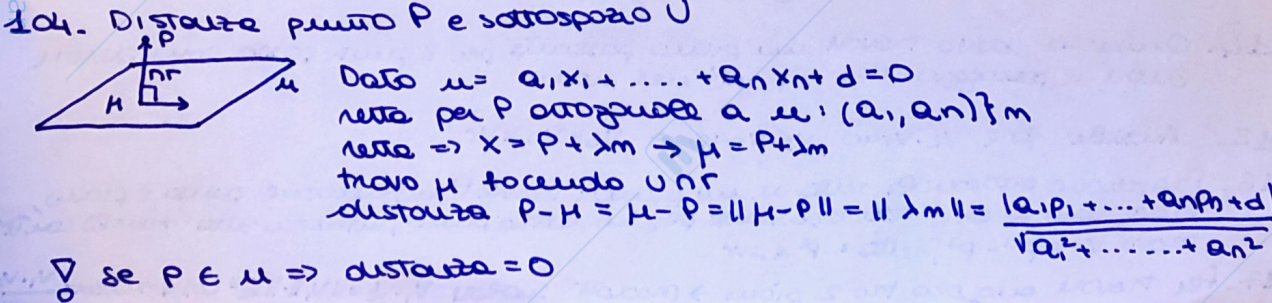 104. Distanza punto P e sottospazio U
P
nr
H
u
Dato u = a₁x₁ + .... + aₙxₙ + d = 0
retta per P ortogonale a u : (a₁, aₙ)}m
retta => X = P + λm → H = P + λm
trovo H facendo U∩r
distanza P-H = H-P = ||H-P|| = ||λm|| = |a₁p₁ + ... + aₙpₙ + d| / √a₁² + ...... + aₙ²
! se P ∈ u => distanza = 0